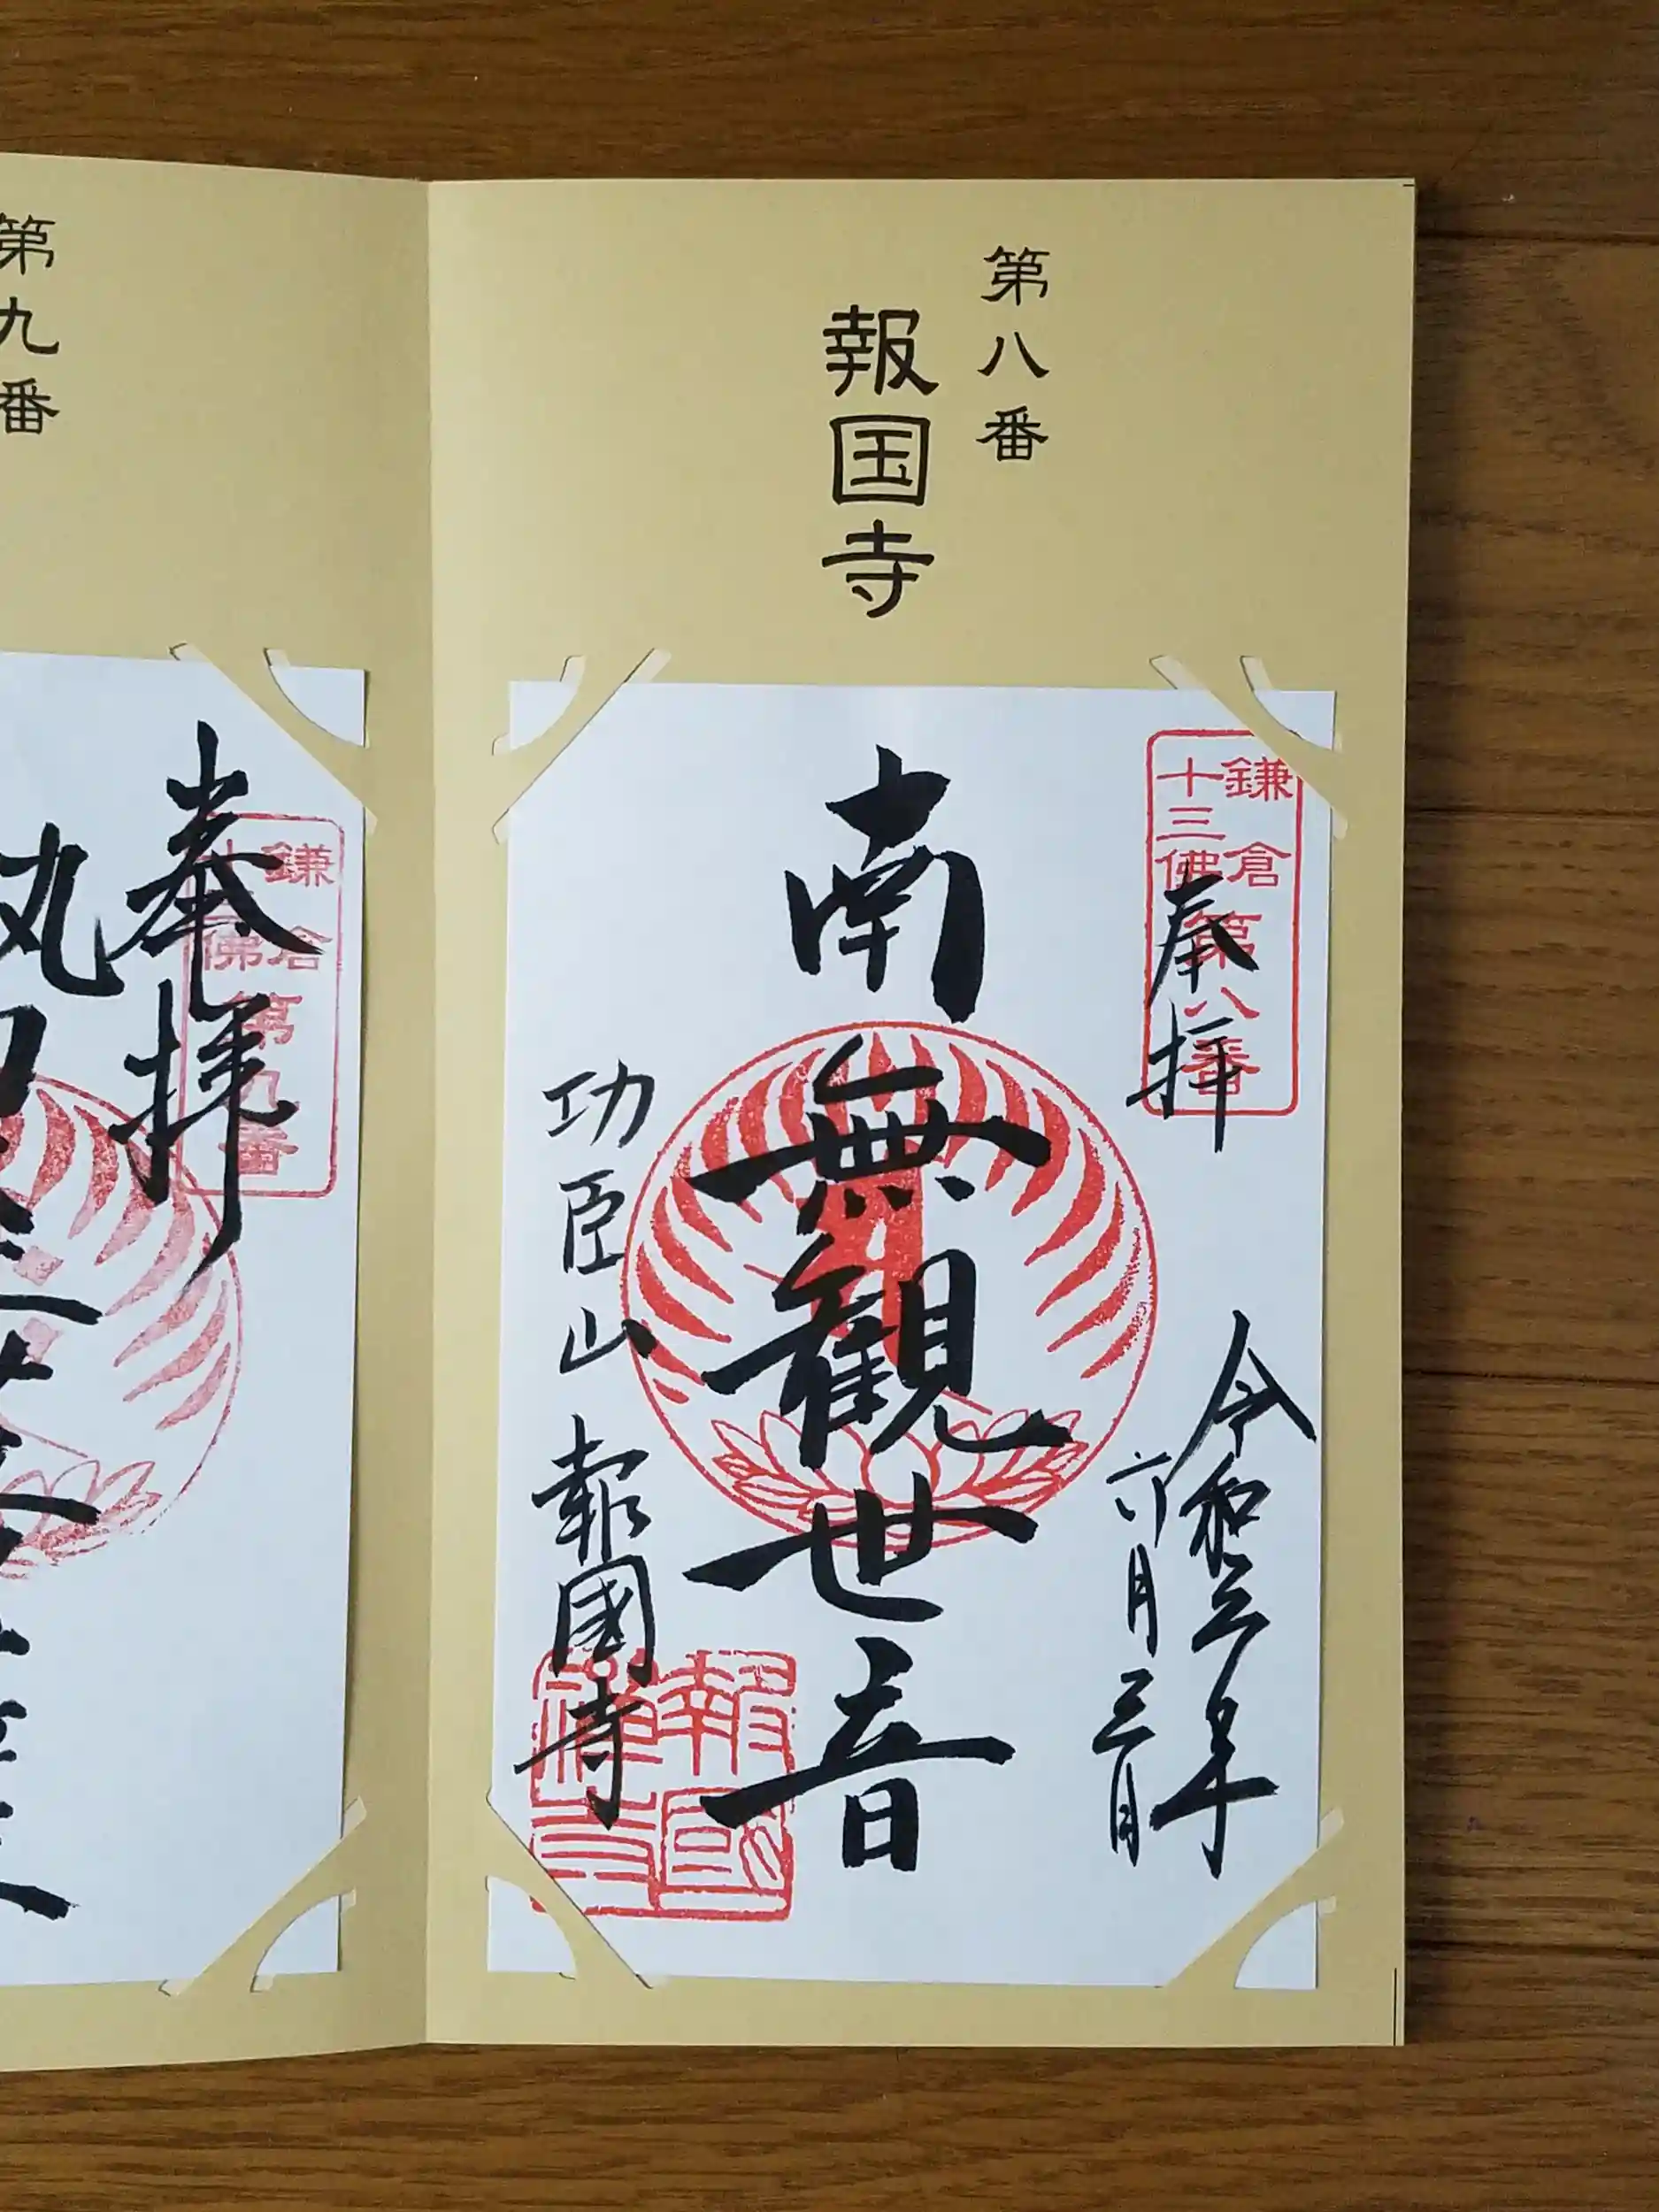 第八番
報国寺
鎌倉
十三佛
第八番
奉拝
令和三年
六月三日
南無観世音
功臣山
報國寺
報國
禅寺
第九番
鎌倉
佛
第九番
奉拝